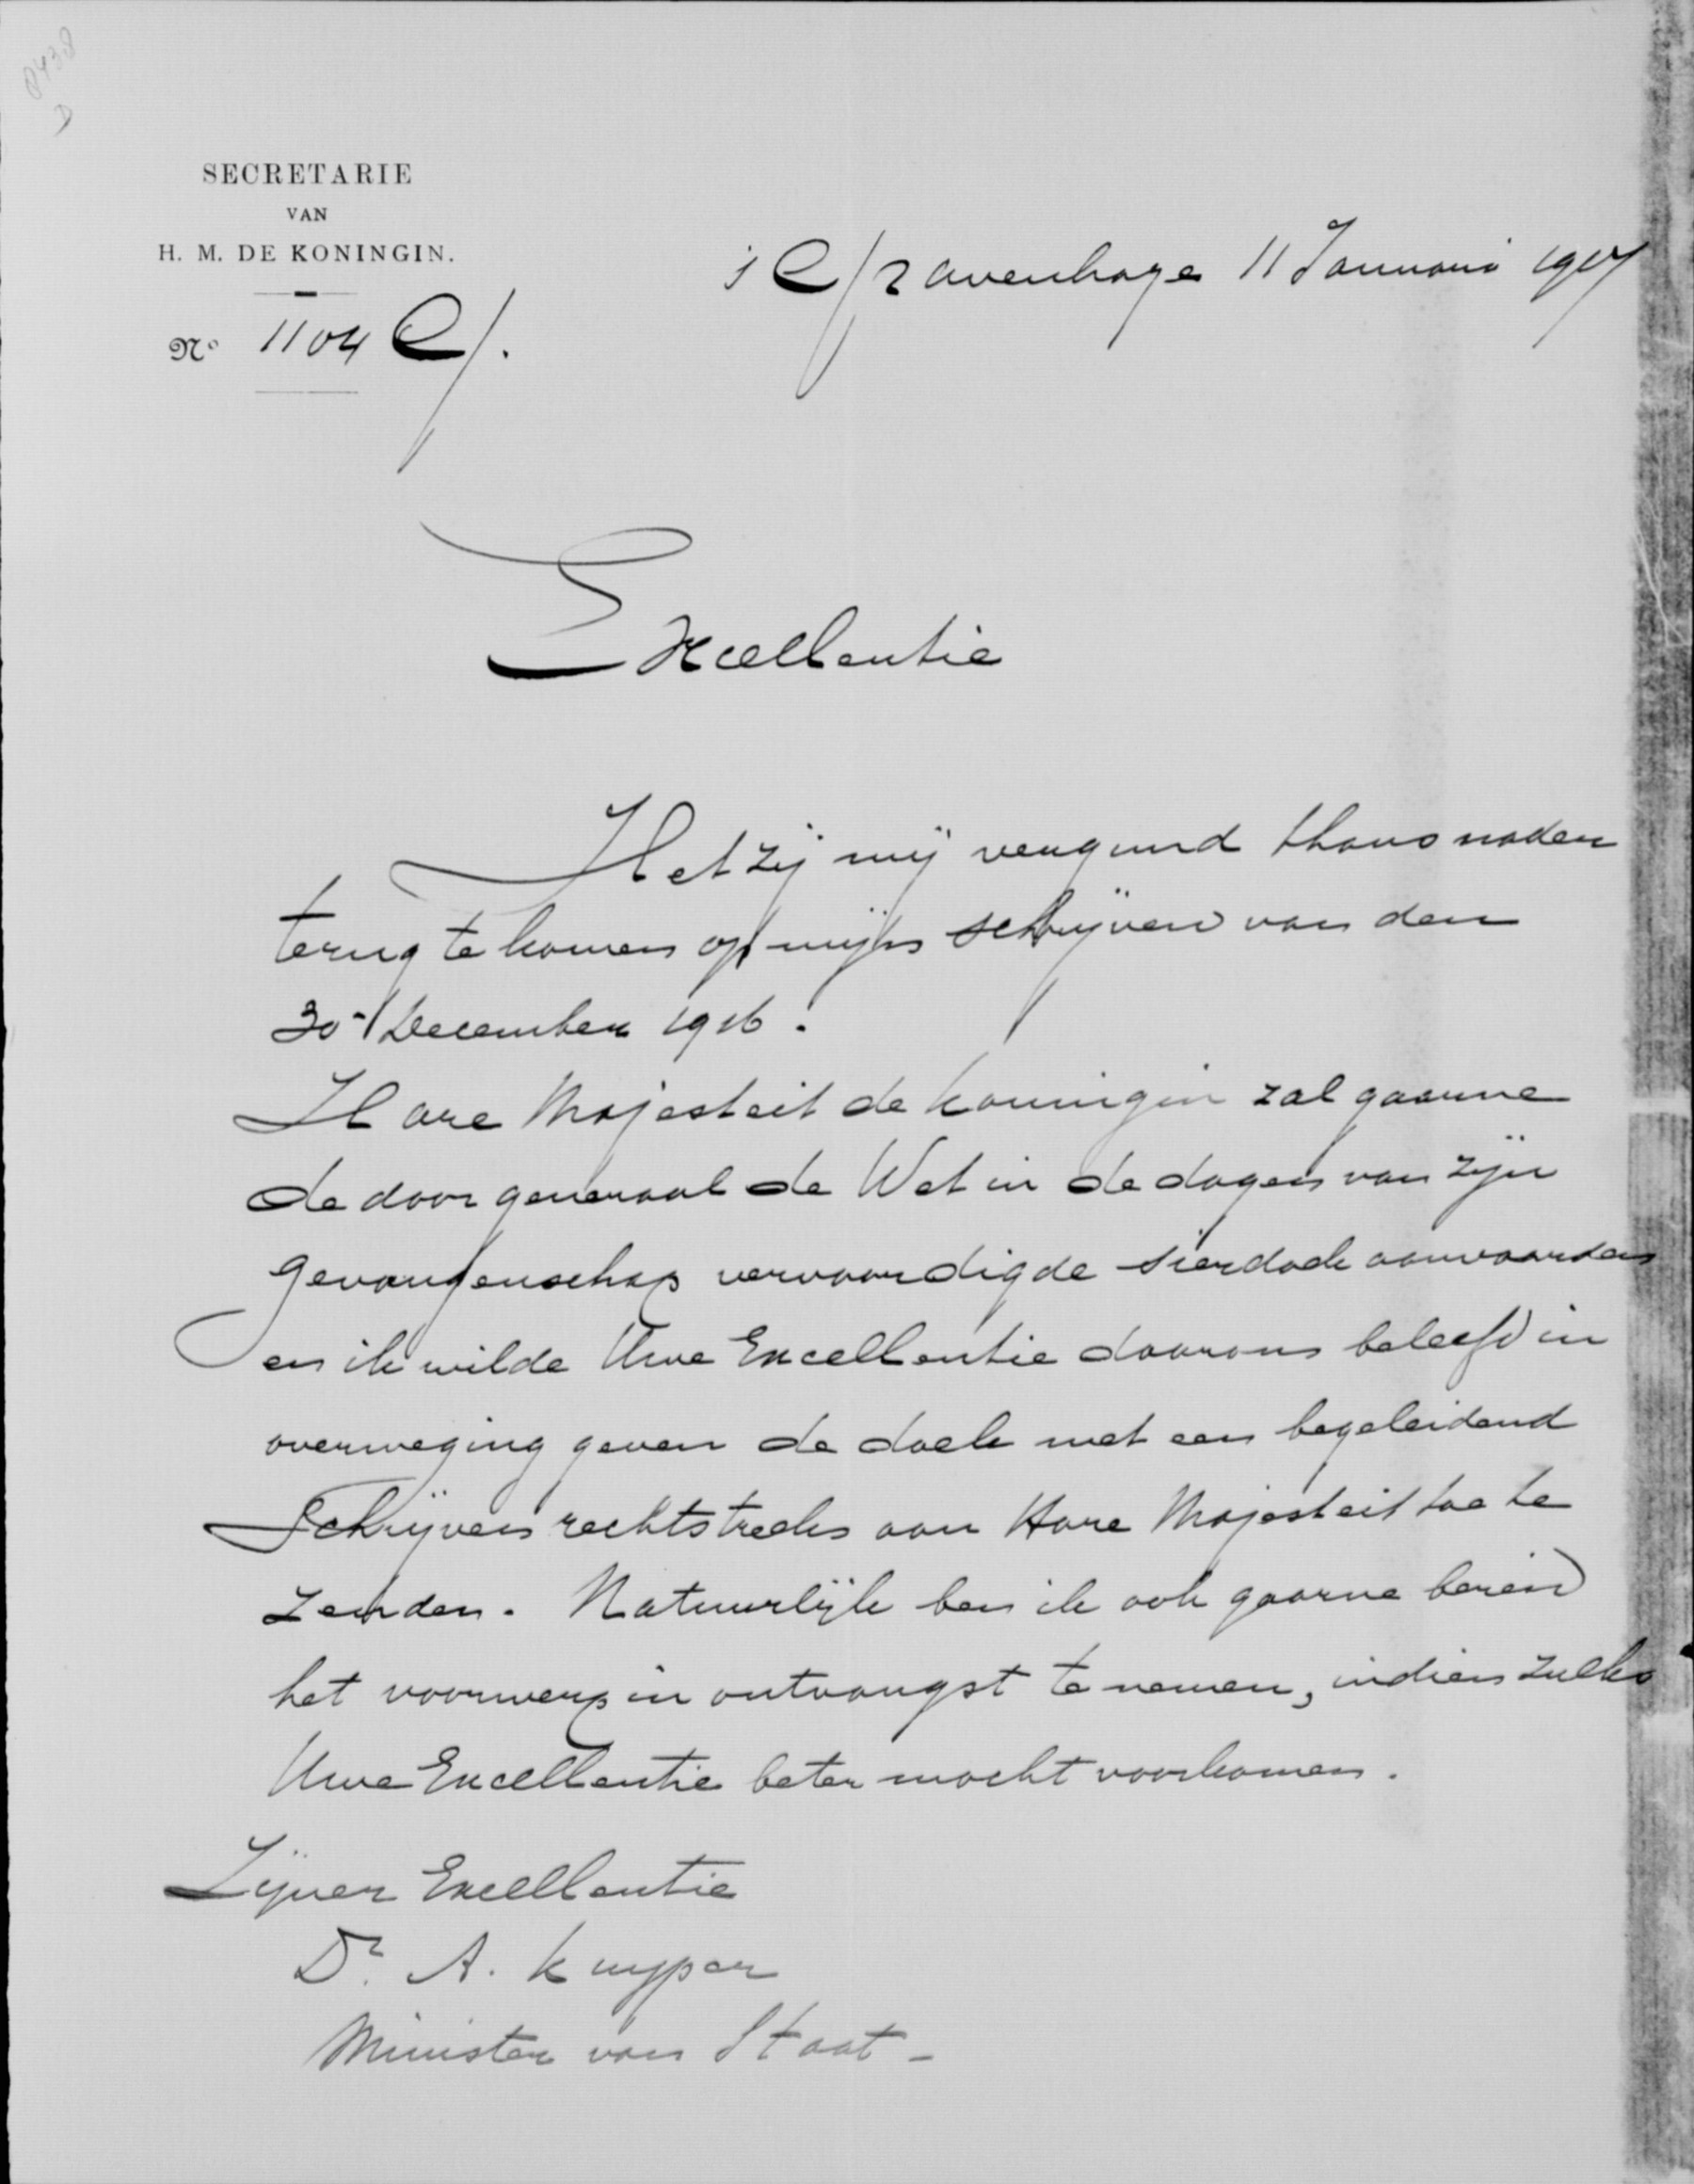 8438
D
SECRETARIE
VAN
H. M. DE KONINGIN.
No 1104 G.
's Gravenhage 11 Januari 1917
Excellentie
Het zij mij vergund thans nader
terug te komen op mijn schrijven van den
30 December 1916.
Hare Majesteit de Koningin zal gaarne
de door generaal de Wet in de dagen van zijn
gevangenschap vervaardigde sierdoek aanvaarden
en ik wilde Uwe Excellentie daarom beleefd in
overweging geven de doek met een begeleidend
Schrijven rechtstreeks aan Hare Majesteit toe te
zenden. Natuurlijk ben ik ook gaarne bereid
het voorwerp in ontvangst te nemen, indien zulks
Uwe Excellentie beter mocht voorkomen.
Zijner Excellentie
Dr. A. Kuyper
Minister van Staat -